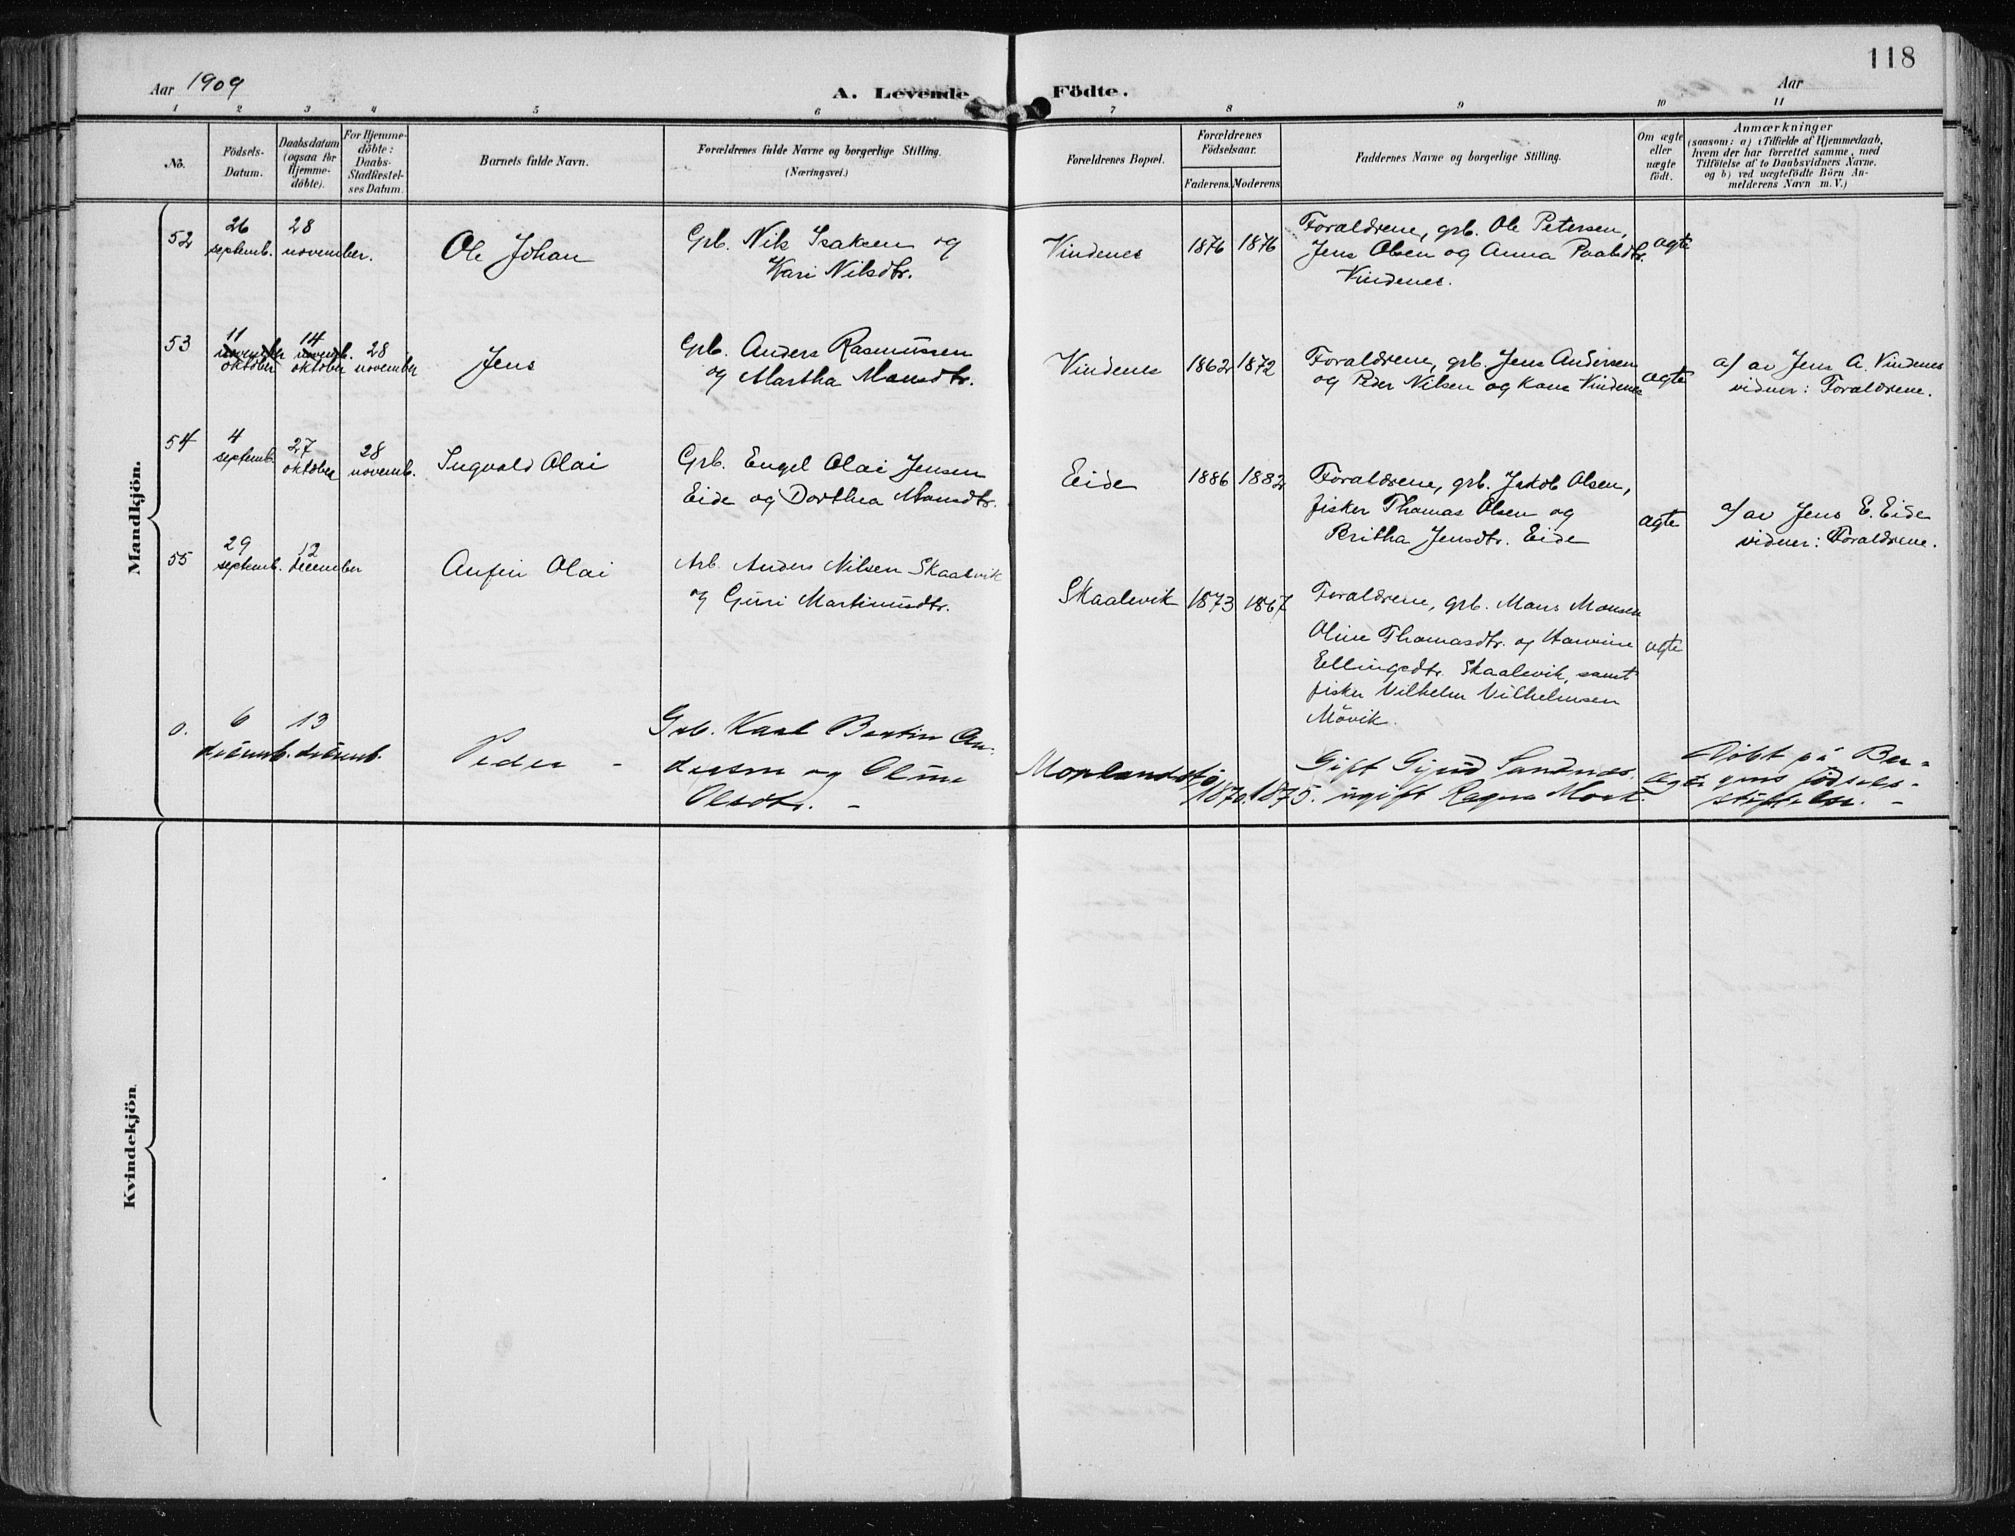 118
Aar 1909
A. Levende Födte.
Aar
1 2 3 4 5 6 7 8 9 10 11
No.
Födsels-
Datum.
Daabsdatum
(ogsaa for
Hjemme-
döbte).
For Hjemme-
döbte:
Daabs-
Stadfæstel-
ses Datum.
Barnets fulde Navn.
Forældrenes fulde Navne og borgerlige Stilling.
(Næringsvei.)
Forældrenes Bopæl.
Forældrenes
Födselsaar.
Faderens. Moderens.
Faddernes Navne og borgerlige Stilling.
Om ægte
eller
uægte
födt.
Anmærkninger
(saasom: a) i Tilfælde af Hjemmedaab,
hvem der har forrettet samme, med
Tilföielse af to Daabsvidners Navne.
og b) ved uægtefödte Börn An-
melderens Navn m. V.)
Mandkjön.
52
26
septemb.
28
november.
Ole Johan
Grb. Nils Isaksen og
Kari Nilsdtr.
Vindenes
1876 1876
Forældrene, grb. Ole Petersen,
Jens Olsen og Anna Paalsdtr.
Vindenes.
ægte
53
11
november
oktober
14
novemb.
oktober
28
november
Jens
Grb. Anders Rasmussen
og Martha Monsdtr.
Vindenes
1862 1872
Forældrene, grb. Jens Andersen
og Peder Nilsen og kone Vindenes
ægte
a/ av Jens A. Vindenes
vidner: Forældrene.
54
4
septemb.
27
oktober
28
novemb.
Ingvald Olai
Grb. Engel Olai Jensen
Eide og Dorthea Monsdtr.
Eide
1886 1882
Forældrene, grb. Jakob Olsen,
fisker Thomas Olsen og
Britha Jensdtr. Eide
ægte
a/ av Jens E. Eide
vidner: Forældrene.
55
29
septemb.
12
december
Anfin Olai
Arb. Anders Nilsen Skaalevik
og Guri Martinusdtr.
Skaalevik
1873 1867
Forældrene, grb. Mons Monsen
Oline Thomasdtr. og
Ellingsdtr. Skaalevik, samt
fisker Vilhelm Vilhelmsen
Mövik.
ægte
0.
6
desemb.
13
desemb.
Peder -
Grb. Karl Bertin An-
dersen og Oline
Olsdtr. -
1870. 1875.
Gift Sandnes.
ugift Ragna
ægte
Döbt på Ber-
gens födsels-
stiftelse. -
Kvindekjön